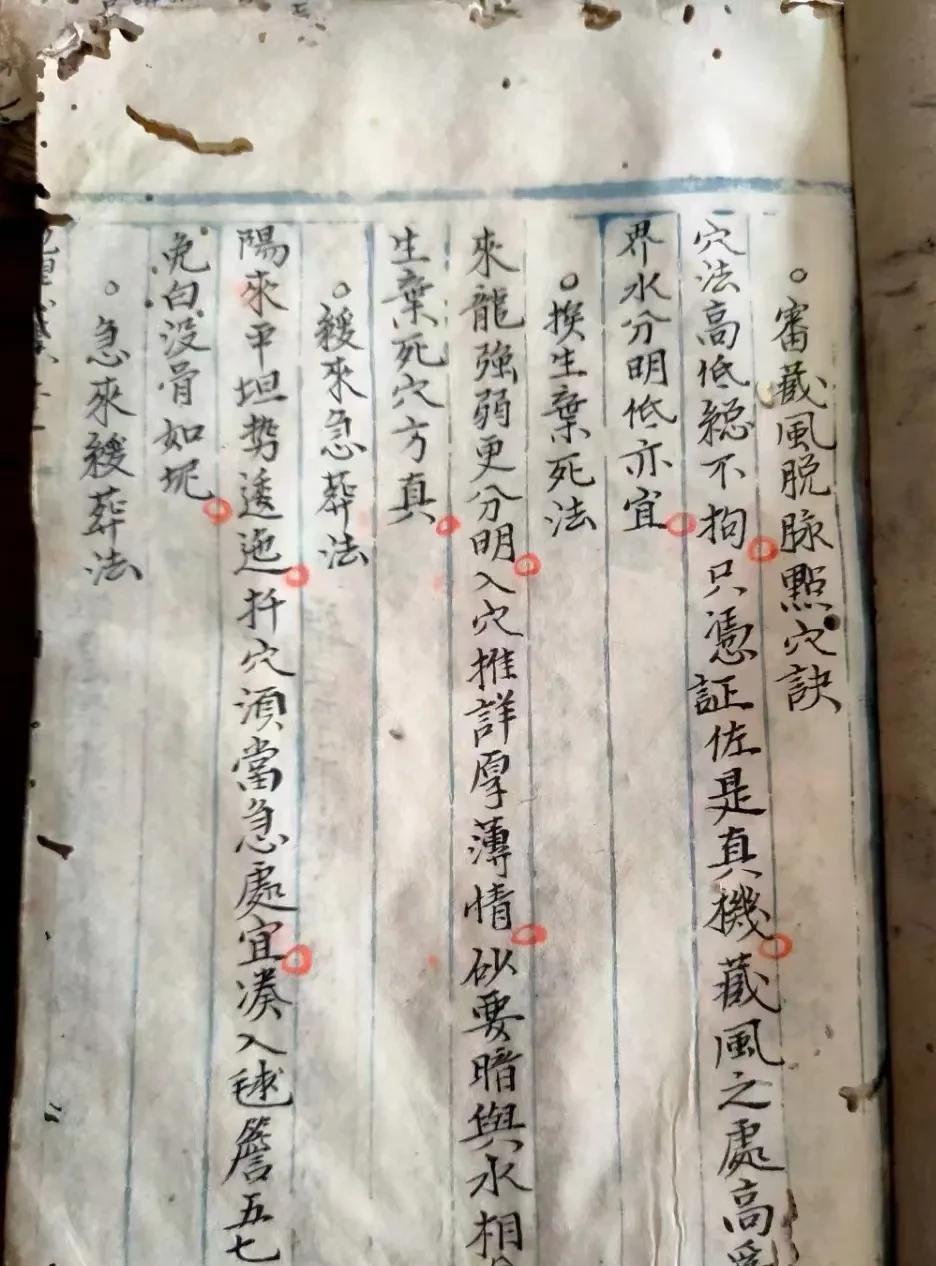 。審藏風脱脉點穴訣
穴法高低總不拘只憑証佐是真機藏風之處高
界水分明低亦宜
。挨生棄死法
來龍強弱更分明入穴推詳厚薄情砂要暗與水相
生棄死穴方真
。緩來急葬法
陽來平坦勢逶迤扦穴須當急處宜湊入毬簷五七
免白没骨如坭
。急來緩葬法